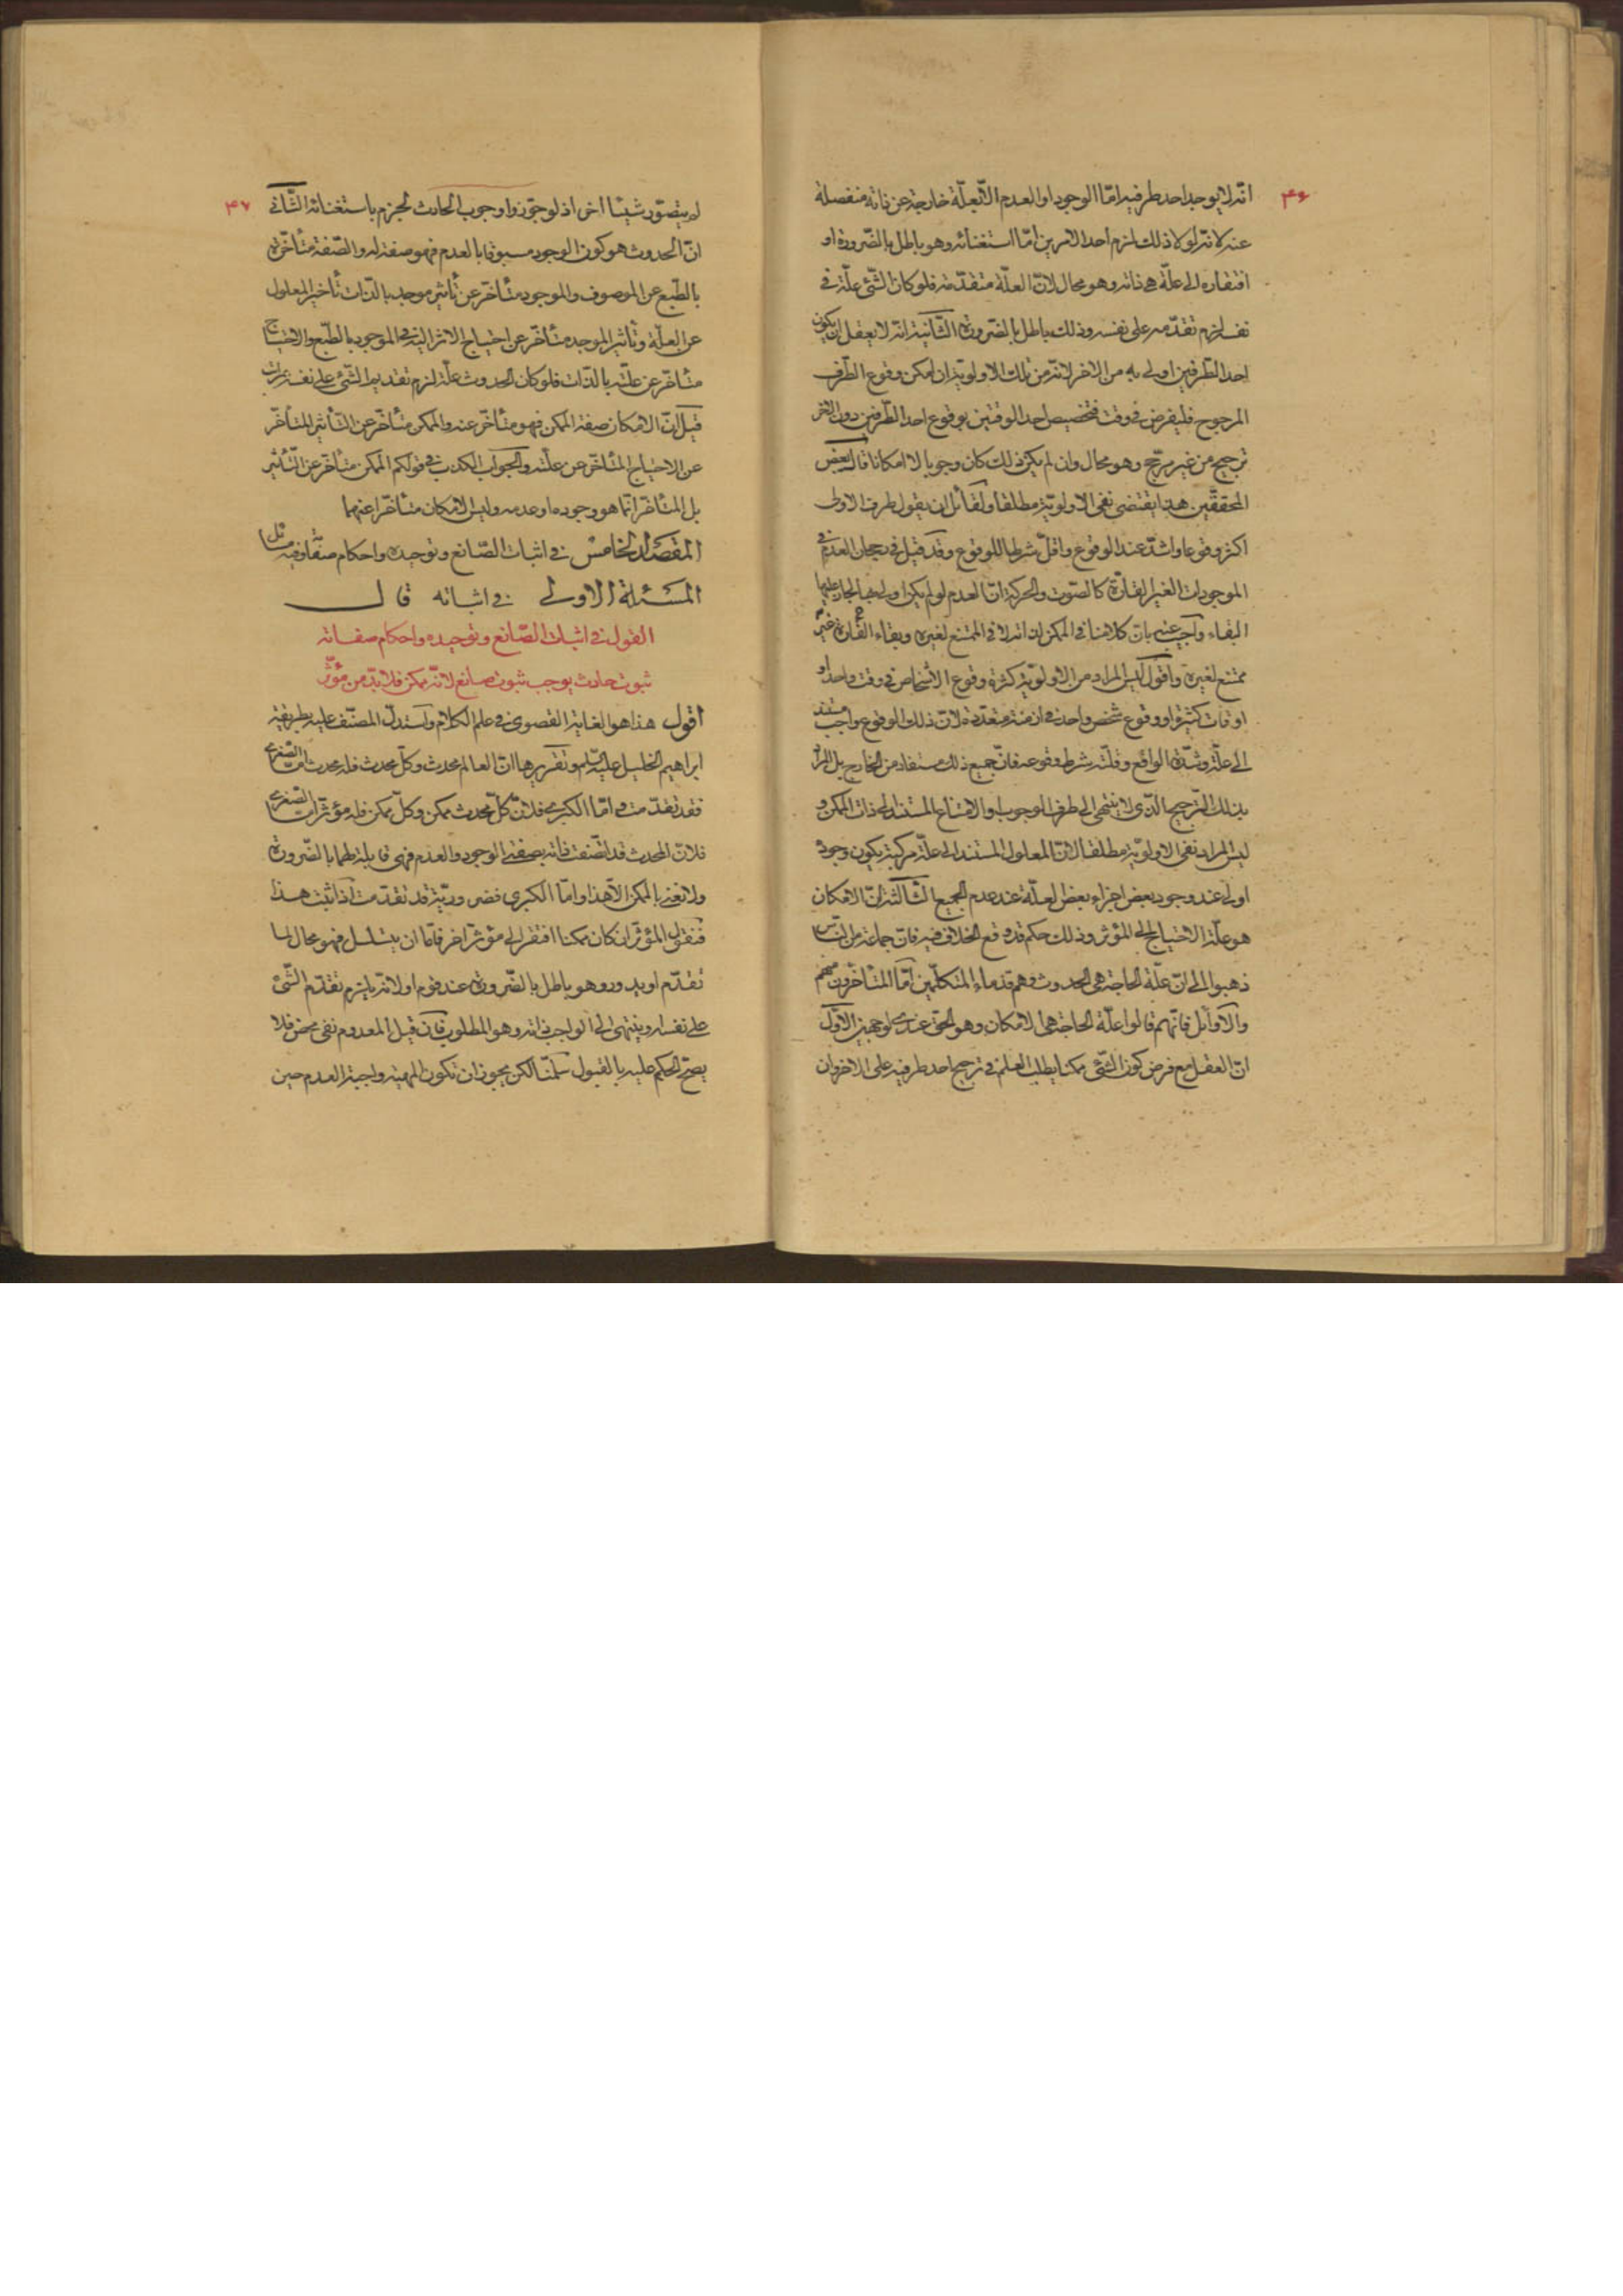 ۴۶
انّه لا يوجد احد طرفيه امّا الوجود او العدم الّا بعلّة خارجة عن ذاته منفصلة
عنه لانّه لو لا ذلك لزم احد الامرين امّا استغنائه وهو باطل بالضّرورة او
افتقاره الى علّة هى ذاته وهو محال لانّ العلّة متقدّمة فلو كان الشّئ علّة فى
نفسه لزم تقدّمه على نفسه وذلك باطل بالضّرورة الثّانية انّه لا يعقل ان يكون
احد الطّرفين اولى به من الاخر لانّه من تلك الاولويّة ان امكن وقوع الطّرف
المرجوح فليفرض فى وقت فتخصيص احد الوقتين بوقوع احد الطّرفين دون الاخر
ترجيح من غير مرجّح وهو محال وان لم يكن ذلك كان وجوبا لا امكانا قال بعض
المحقّقين هذا يقتضى نفى الاولويّة مطلقا ولقائل ان يقول طرف الاولى
اكثر وقوعا واشدّ عند الوقوع واقلّ شرطا للوقوع وقد قيل فى رجحان العدم فى
الموجودات الغير القارّة كالصّوت والحركة انّ العدم لو لم يكن اولى بها لجاز عليها
البقاء واجيب عنه بانّ كلامنا فى الممكن لذاته لا فى الممتنع لغيره وبقاء القارّة غير
ممتنع لغيره واقول ليس المراد من الاولويّة كثرة وقوع الاشخاص فى وقت واحد او
اوقات كثيرة او وقوع شخص واحد فى ازمنة متعدّدة لانّ ذلك الوقوع واجب مستند
الى علّة وشدّة الواقع وقلّة شرط وقوعه فانّ جميع ذلك مستفاد من الخارج بل المراد
بذلك التّرجيح الّذى لا ينتهى الى طرف الوجوب او الامتناع المستند الى ذات الممكن و
ليس المراد نفى الاولويّة مطلقا لانّ المعلول المستند الى علّة مركّبة يكون وجوده
اولى عند وجود بعض اجزاء بعض العلّة عند عدم الجميع الثّالثة انّ الامكان
هو علّة الاحتياج الى المؤثر وذلك حكم قد وقع الخلاف فيه فانّ جماعة من النّاس
ذهبوا الى انّ علّة الحاجة هى الحدوث وهم قدماء المتكلّمين امّا المتأخّرون منهم
والاوائل فانّهم قالوا علّة الحاجة هى الامكان وهو الحقّ عندى لوجهين الاوّل
انّ العقل مع فرض كون الشّئ ممكنا يطلب العلّة فى ترجيح احد طرفيه على الاخر وان
۴۷
لم يتصوّر شيئا اخر اذ لو جوّزوا وجوب الحادث لجزم باستغنائه الثّانى
انّ الحدوث هو كون الوجود مسبوقا بالعدم فهو صفة له والصّفة متأخّرة
بالطّبع عن الموصوف والموجود متأخّر عن تأثير موجده بالذّات تأخير المعلول
عن العلّة وتأثير الموجد متأخّر عن احتياج الاثر اليه فى الموجود بالطّبع والاحتياج
متأخّر عن علّته بالذّات فلو كان الحدوث علّة لزم تقديم الشّئ على نفسه بمراتب
قيل انّ الامكان صفة الممكن فهو متأخّر عنه والممكن متأخّر عن التّأثير المتأخّر
عن الاحتياج المتأخّر عن علّته والجواب الكذب فى قولكم الممكن متأخّر عن التّأثير
بل المتأخّر انّما هو وجوده او عدمه وليس الامكان متأخّرا عنهما
المقصد الخامس فى اثبات الصّانع وتوحيده واحكام صفاته وفيه مسائل
المسئلة الاولى فى اثباته قال
القول فى اثبات الصّانع وتوحيده واحكام صفاته
ثبوت حادث يوجب ثبوت صانع لانّه ممكن فلا بدّ من مؤثّر
اقول هذا هو الغاية القصوى فى علم الكلام واستدلّ المصنّف عليه بطريقة
ابراهيم الخليل عليه السّلم وتقريرها انّ العالم محدث وكلّ محدث فله محدث امّا الصّغرى
فقد تقدّمت وامّا الكبرى فلانّ كلّ محدث ممكن وكلّ ممكن فله مؤثّر امّا الصّغرى
فلانّ المحدث قد اتّصفت ذاته بصفتى الوجود والعدم فهى قابلة لهما بالضّرورة
ولا نعنى بالممكن الّا هذا وامّا الكبرى فضروريّة قد تقدّمت اذا ثبت هذا
فنقول المؤثّر ان كان ممكنا افتقر الى مؤثّر اخر فامّا ان يتسلسل فهو محال لما
تقدّم او يدور وهو باطل بالضّرورة عند قوم او لانّه يلزم تقدّم الشّئ
على نفسه او ينتهى الى الواجب لذاته وهو المطلوب فان قيل المعدوم نفى محض فلا
يصحّ الحكم عليه بالقبول سلّمنا لكن يجوز ان تكون المهيّة واجبة العدم حين